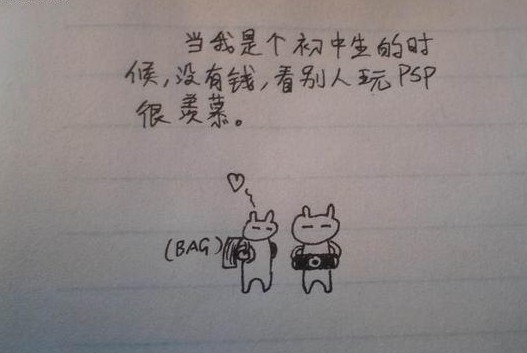 当我是个初中生的时
候，没有钱，看别人玩PSP
很羡慕。
(BAG)